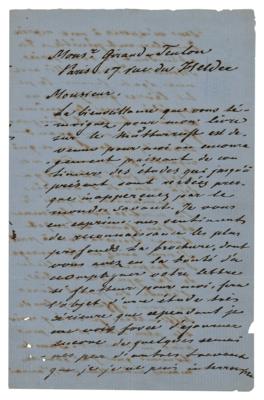 Monsr. Giraud-Teulon
Paris 17 rue du Helder
Monsieur.
La bienveillance que vous té-
moignez pour mon livre
sur le Mutterrecht est de-
venue pour moi un encoura-
gement puissant de con-
tinuer des études qui jusqu'à
présent sont restées pres-
que inaperçues par le
monde savant. Je vous
en exprime mes sentiments
de reconnaissance les plus
profonds. La brochure, dont
vous avez eu la bonté d'ac-
compagner votre lettre
si flatteuse pour moi, fera
l'objet d'une étude très
sérieuse, que cependant je
me vois forcé d'ajourner
encore de quelques semai-
nes par d'autres travaux
que je ne puis interrompre